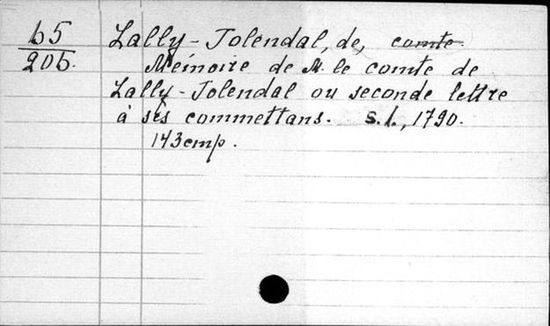 65
206.
Lally-Tolendal, de, comte
Mémoire de M. le comte de
Lally-Tolendal ou seconde lettre
à ses commettans. s.l., 1790.
143 стр.